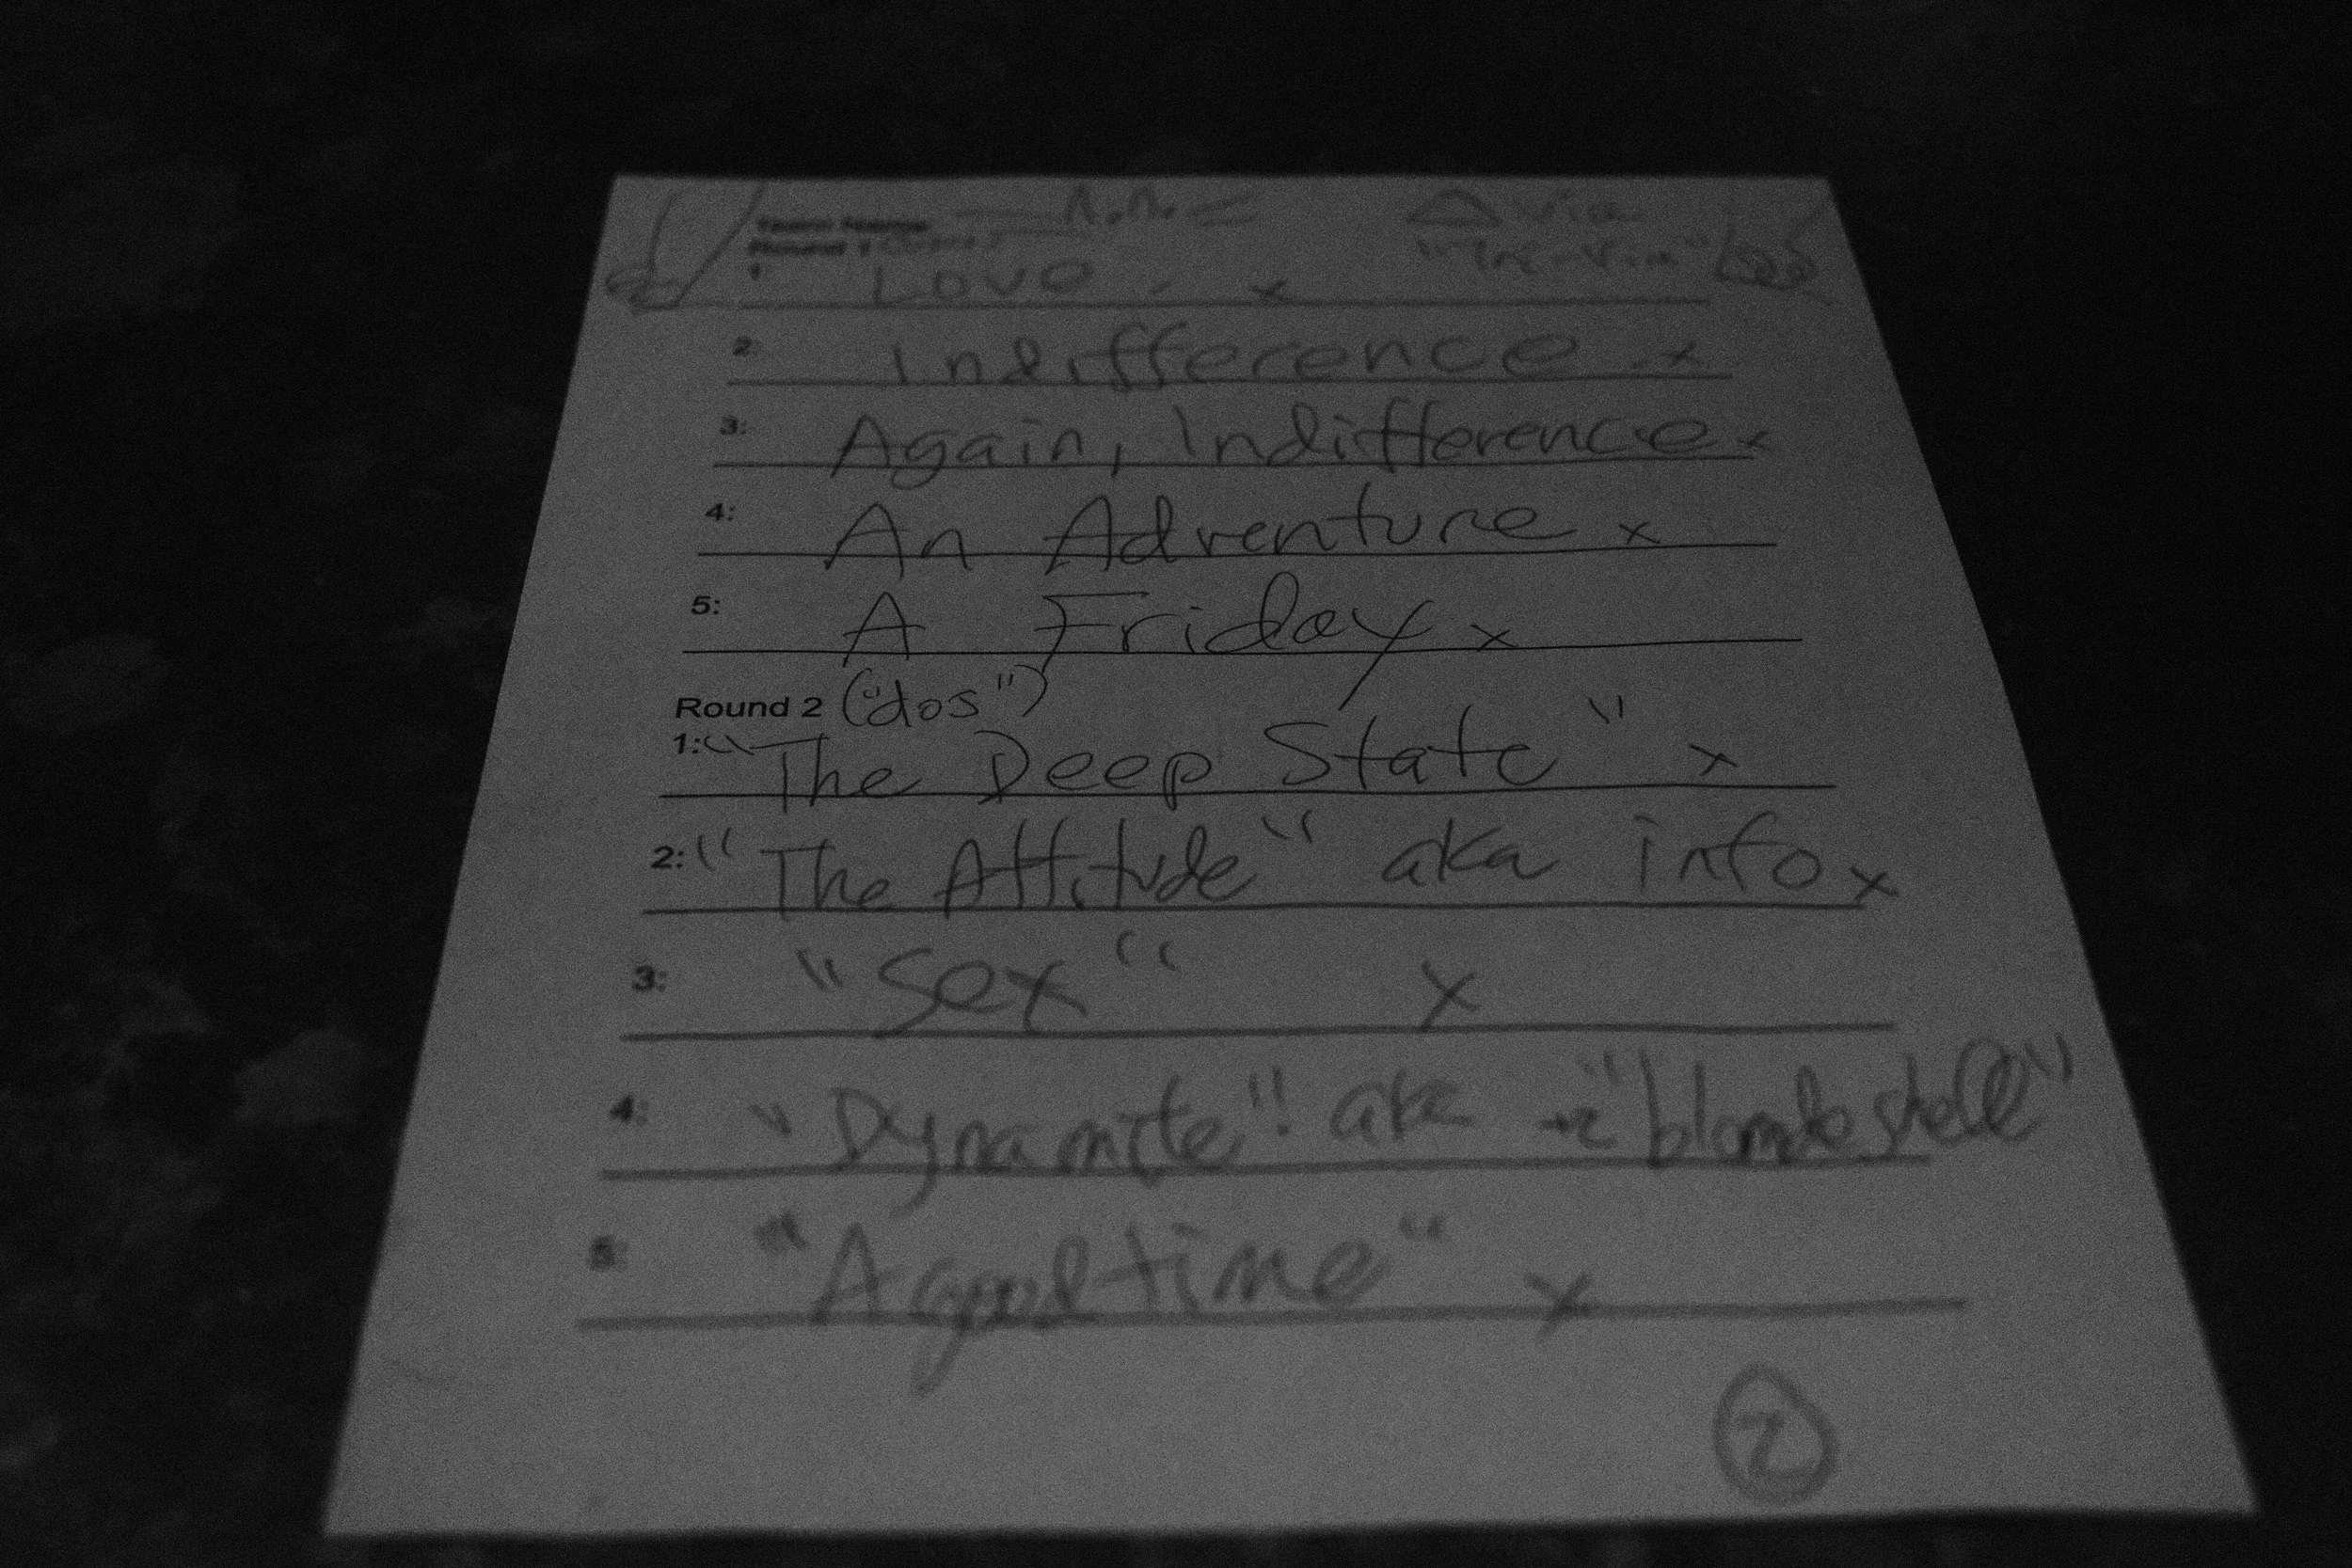 Team Name
Round 1
△ Via
"Tri-Via"
1: Love x
2: Indifference x
3: Again, Indifference x
4: An Adventure x
5: A Friday x
Round 2 ("dos")
1: "The Deep State" x
2: "The Attitude" aka info x
3: "Sex" x
4: "Dynamite"! aka +2 "blondeshell"
5: "A good time" x
2